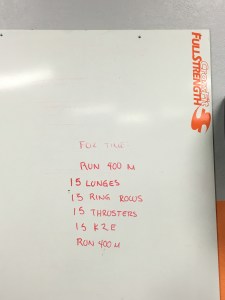 CROSSFIT
FULLSTRENGTH
FOR TIME
RUN 400 M
15 LUNGES
15 RING ROWS
15 THRUSTERS
15 K2E
RUN 400 M